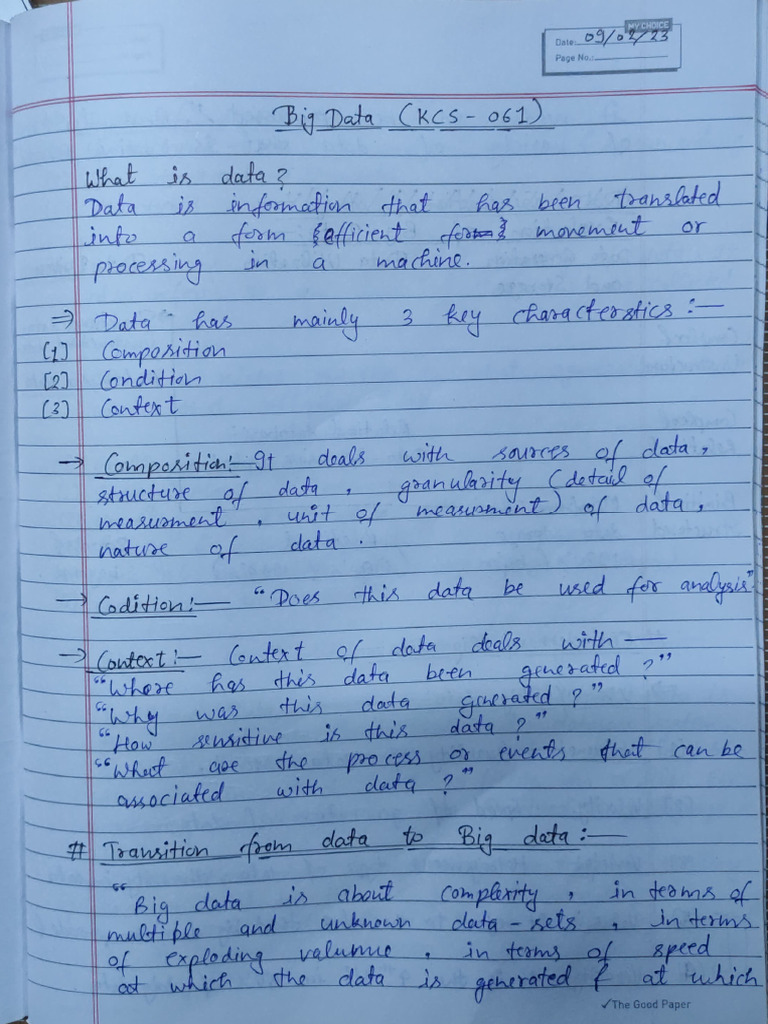 MY CHOICE
Date: 09/02/23
Page No.:
Big Data (KCS-061)
What is data?
Data is information that has been translated
into a form {efficient } movement or
processing in a machine.
⇒ Data has mainly 3 key characterstics :—
[1] Composition
[2] Condition
[3] Context
→ Composition:— It deals with sources of data,
structure of data, granularity (detail of
measurment, unit of measurment) of data,
nature of data.
→ Codition:— "Does this data be used for analysis"
→ Context:— Context of data deals with —
"Where has this data been generated?"
"Why was this data generated?"
"How sensitive is this data?"
"What are the process or events that can be
associated with data?"
# Transition from data to Big data:—
"Big data is about complexity, in terms of
multiple and unknown data-sets, in terms
of exploding valumue, in terms of speed
at which the data is generated & at which
✓The Good Paper